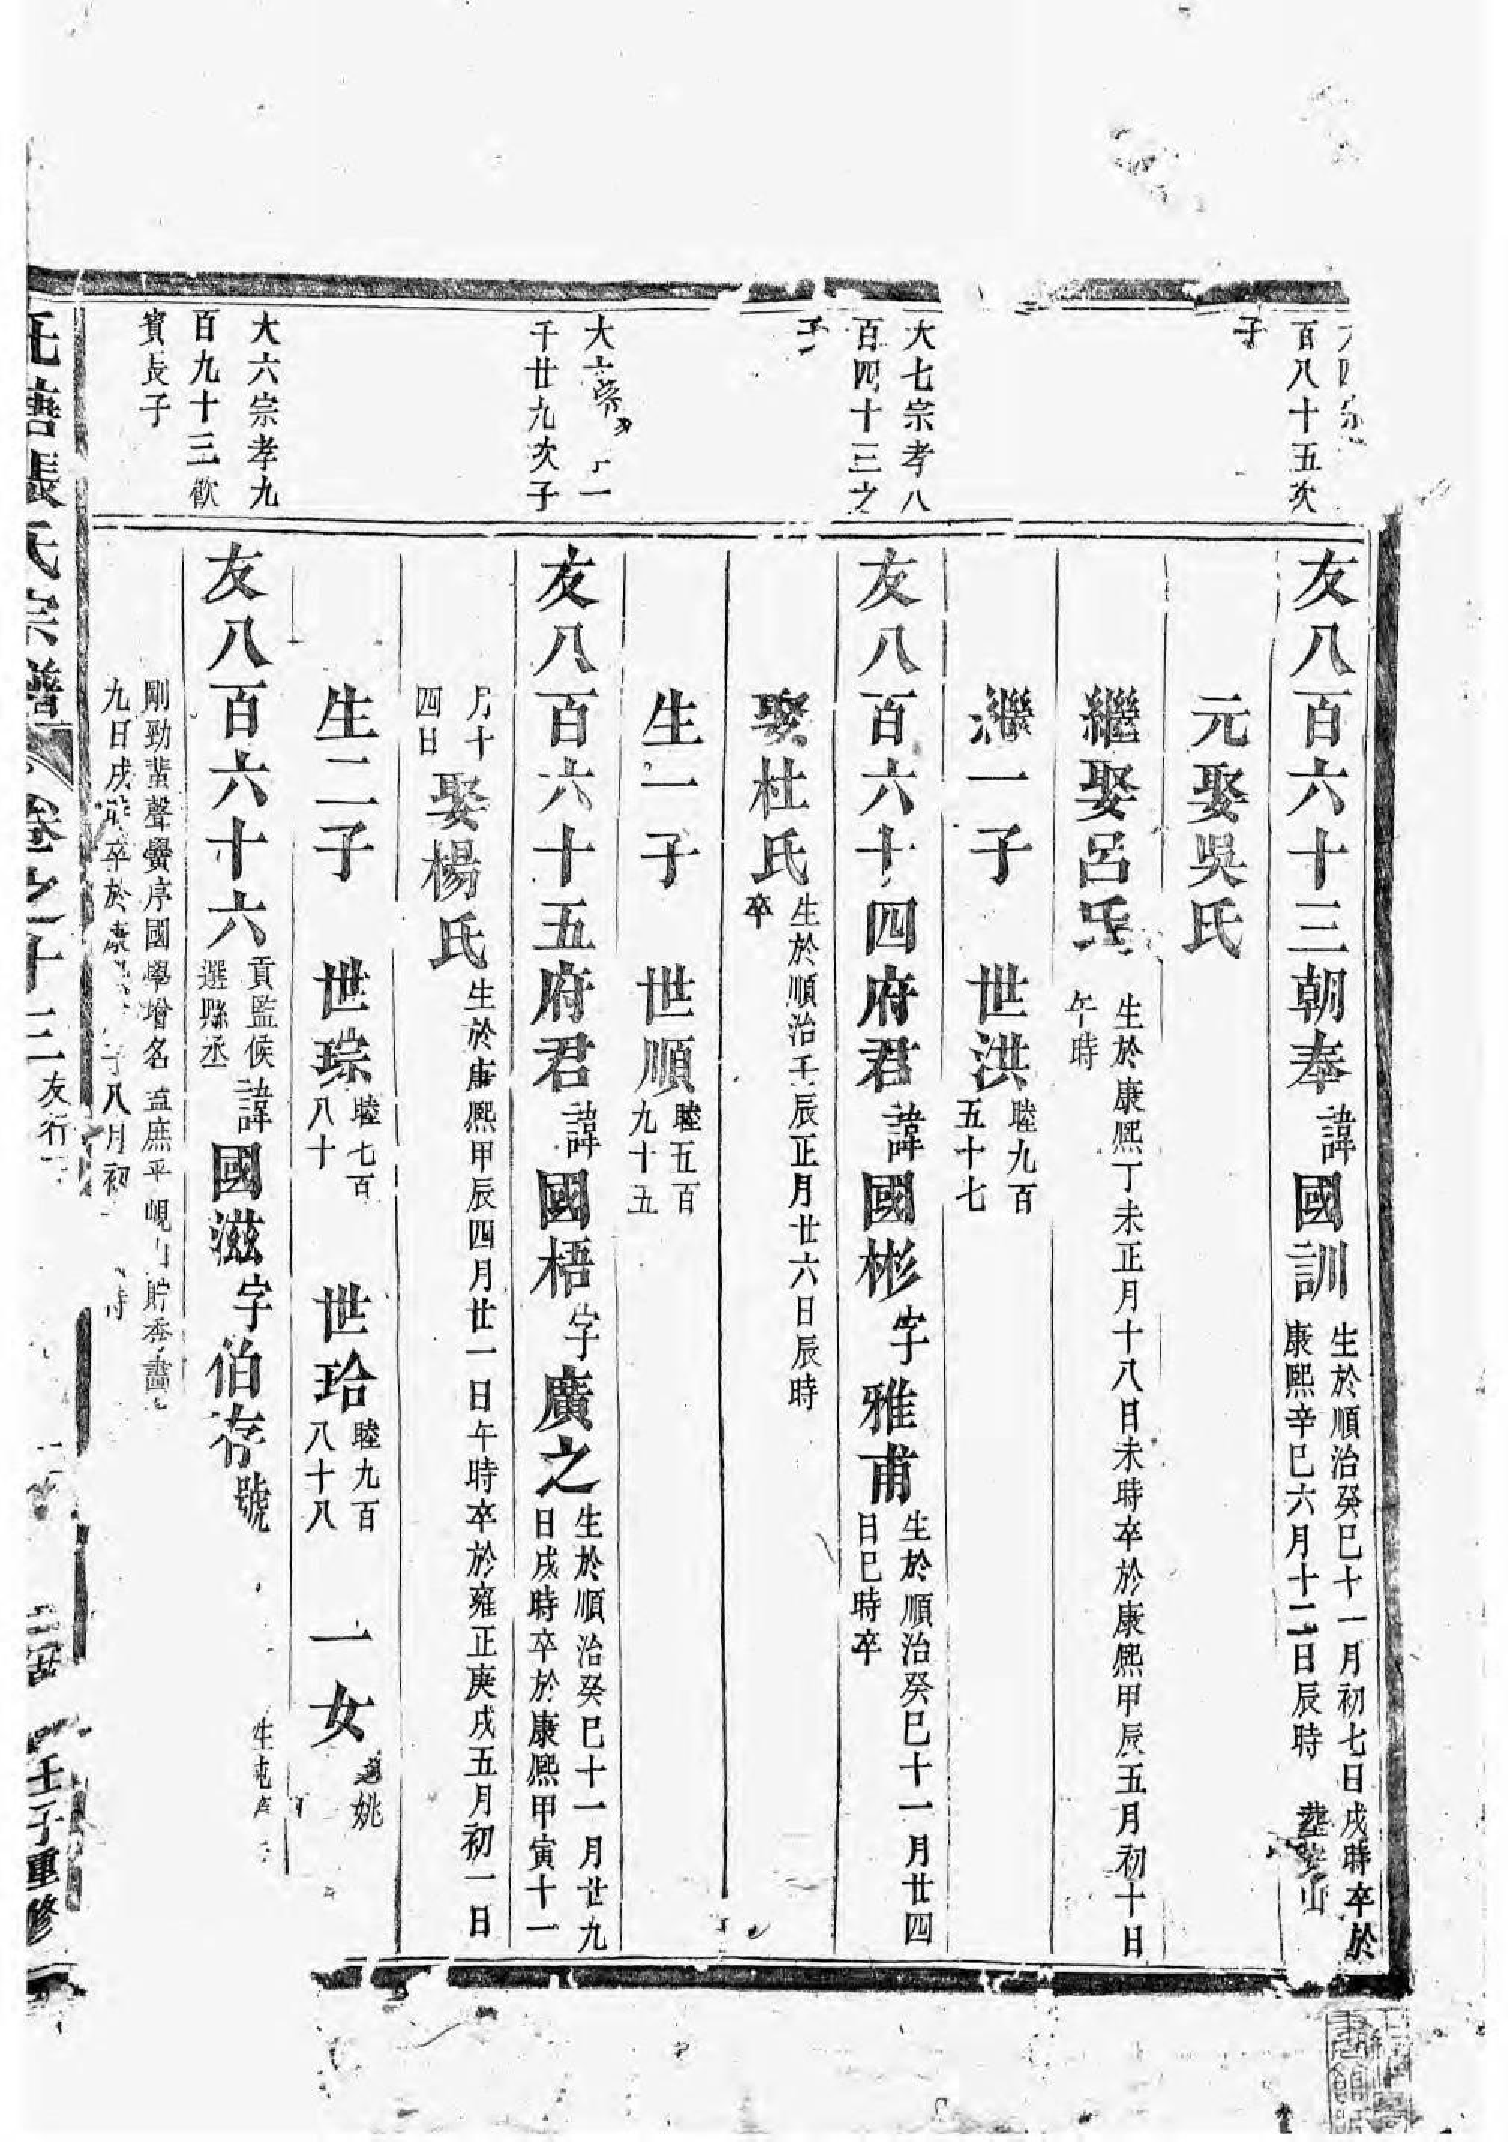 百八十五次
子
友八百六十三朝奉諱國訓
生於順治癸巳十一月初七日戌時卒於
康熙辛巳六月十二日辰時
元娶吳氏
繼娶呂氏
生於康熙丁未正月十八日未時卒於康熙甲辰五月初十日
午時
繼一子 世洪
睦九百
五十七
大七宗孝八
百四十三之
子
友八百六十四府君諱國彬字雅甫
生於順治癸巳十一月廿四
日巳時卒
娶杜氏
生於順治壬辰正月廿六日辰時
卒
生一子 世順
睦五百
九十五
千廿九次子
友八百六十五府君諱國梧字廣之
生於順治癸巳十一月廿九
日戌時卒於康熙甲寅十一
月十
四日
娶楊氏
生於康熙甲辰四月廿一日午時卒於雍正庚戌五月初一日
生二子 世琮
睦七百
八十
世玲
睦九百
八十八
一女
適姚
大六宗孝九
百九十三歡
賓長子
友八百六十六
貢監候
選縣丞
諱國滋字伯存號
剛勁蜚聲黌序國學增名
九日戌時卒於康 子八月初 時
張氏宗譜 卷之十三 友行 壬子重修